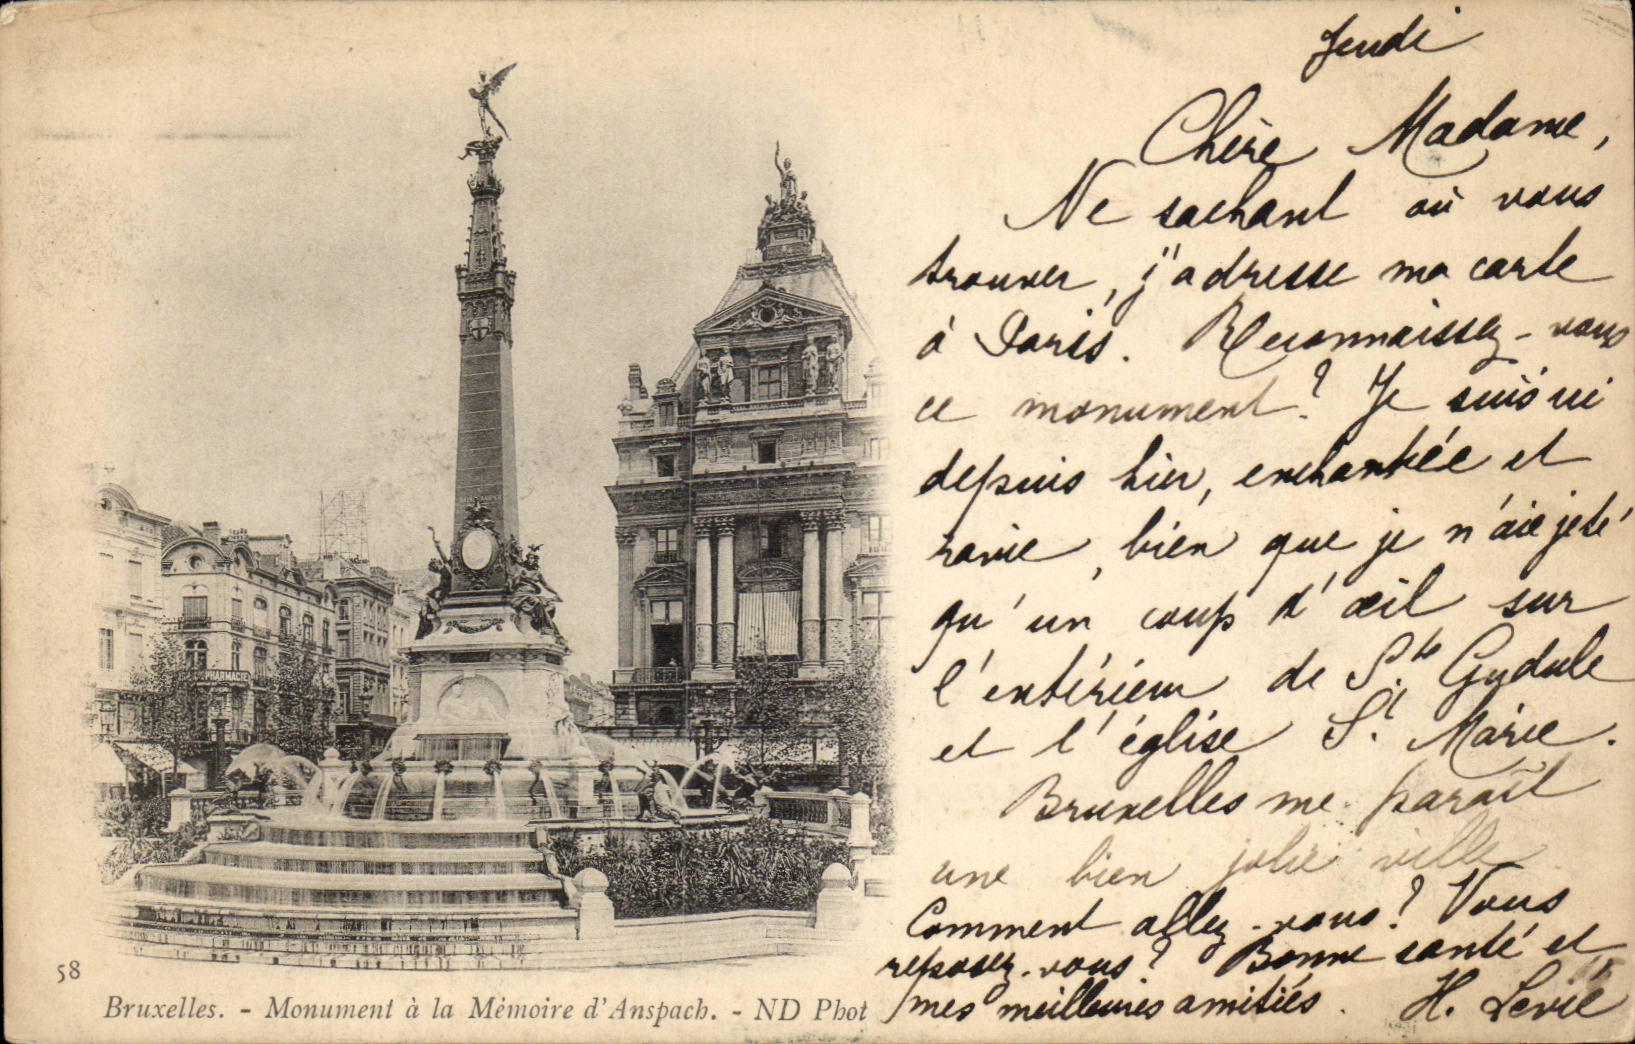 Jeudi
Chère Madame,
Ne sachant où vous
trouver, j'adresse ma carte
à Paris. Reconnaissez-vous
ce monument? Je suis ici
depuis hier, enchantée et
ravie, bien que je n'aie jeté
qu'un coup d'œil sur
l'intérieur de Ste Gudule
et l'église St. Marie.
Bruxelles me paraît
une bien jolie ville
Comment allez-vous? Vous
reposez-vous? Bonne santé et
mes meilleures amitiés. H.
PHARMACIE
58
Bruxelles. - Monument à la Mémoire d'Anspach. - ND Phot